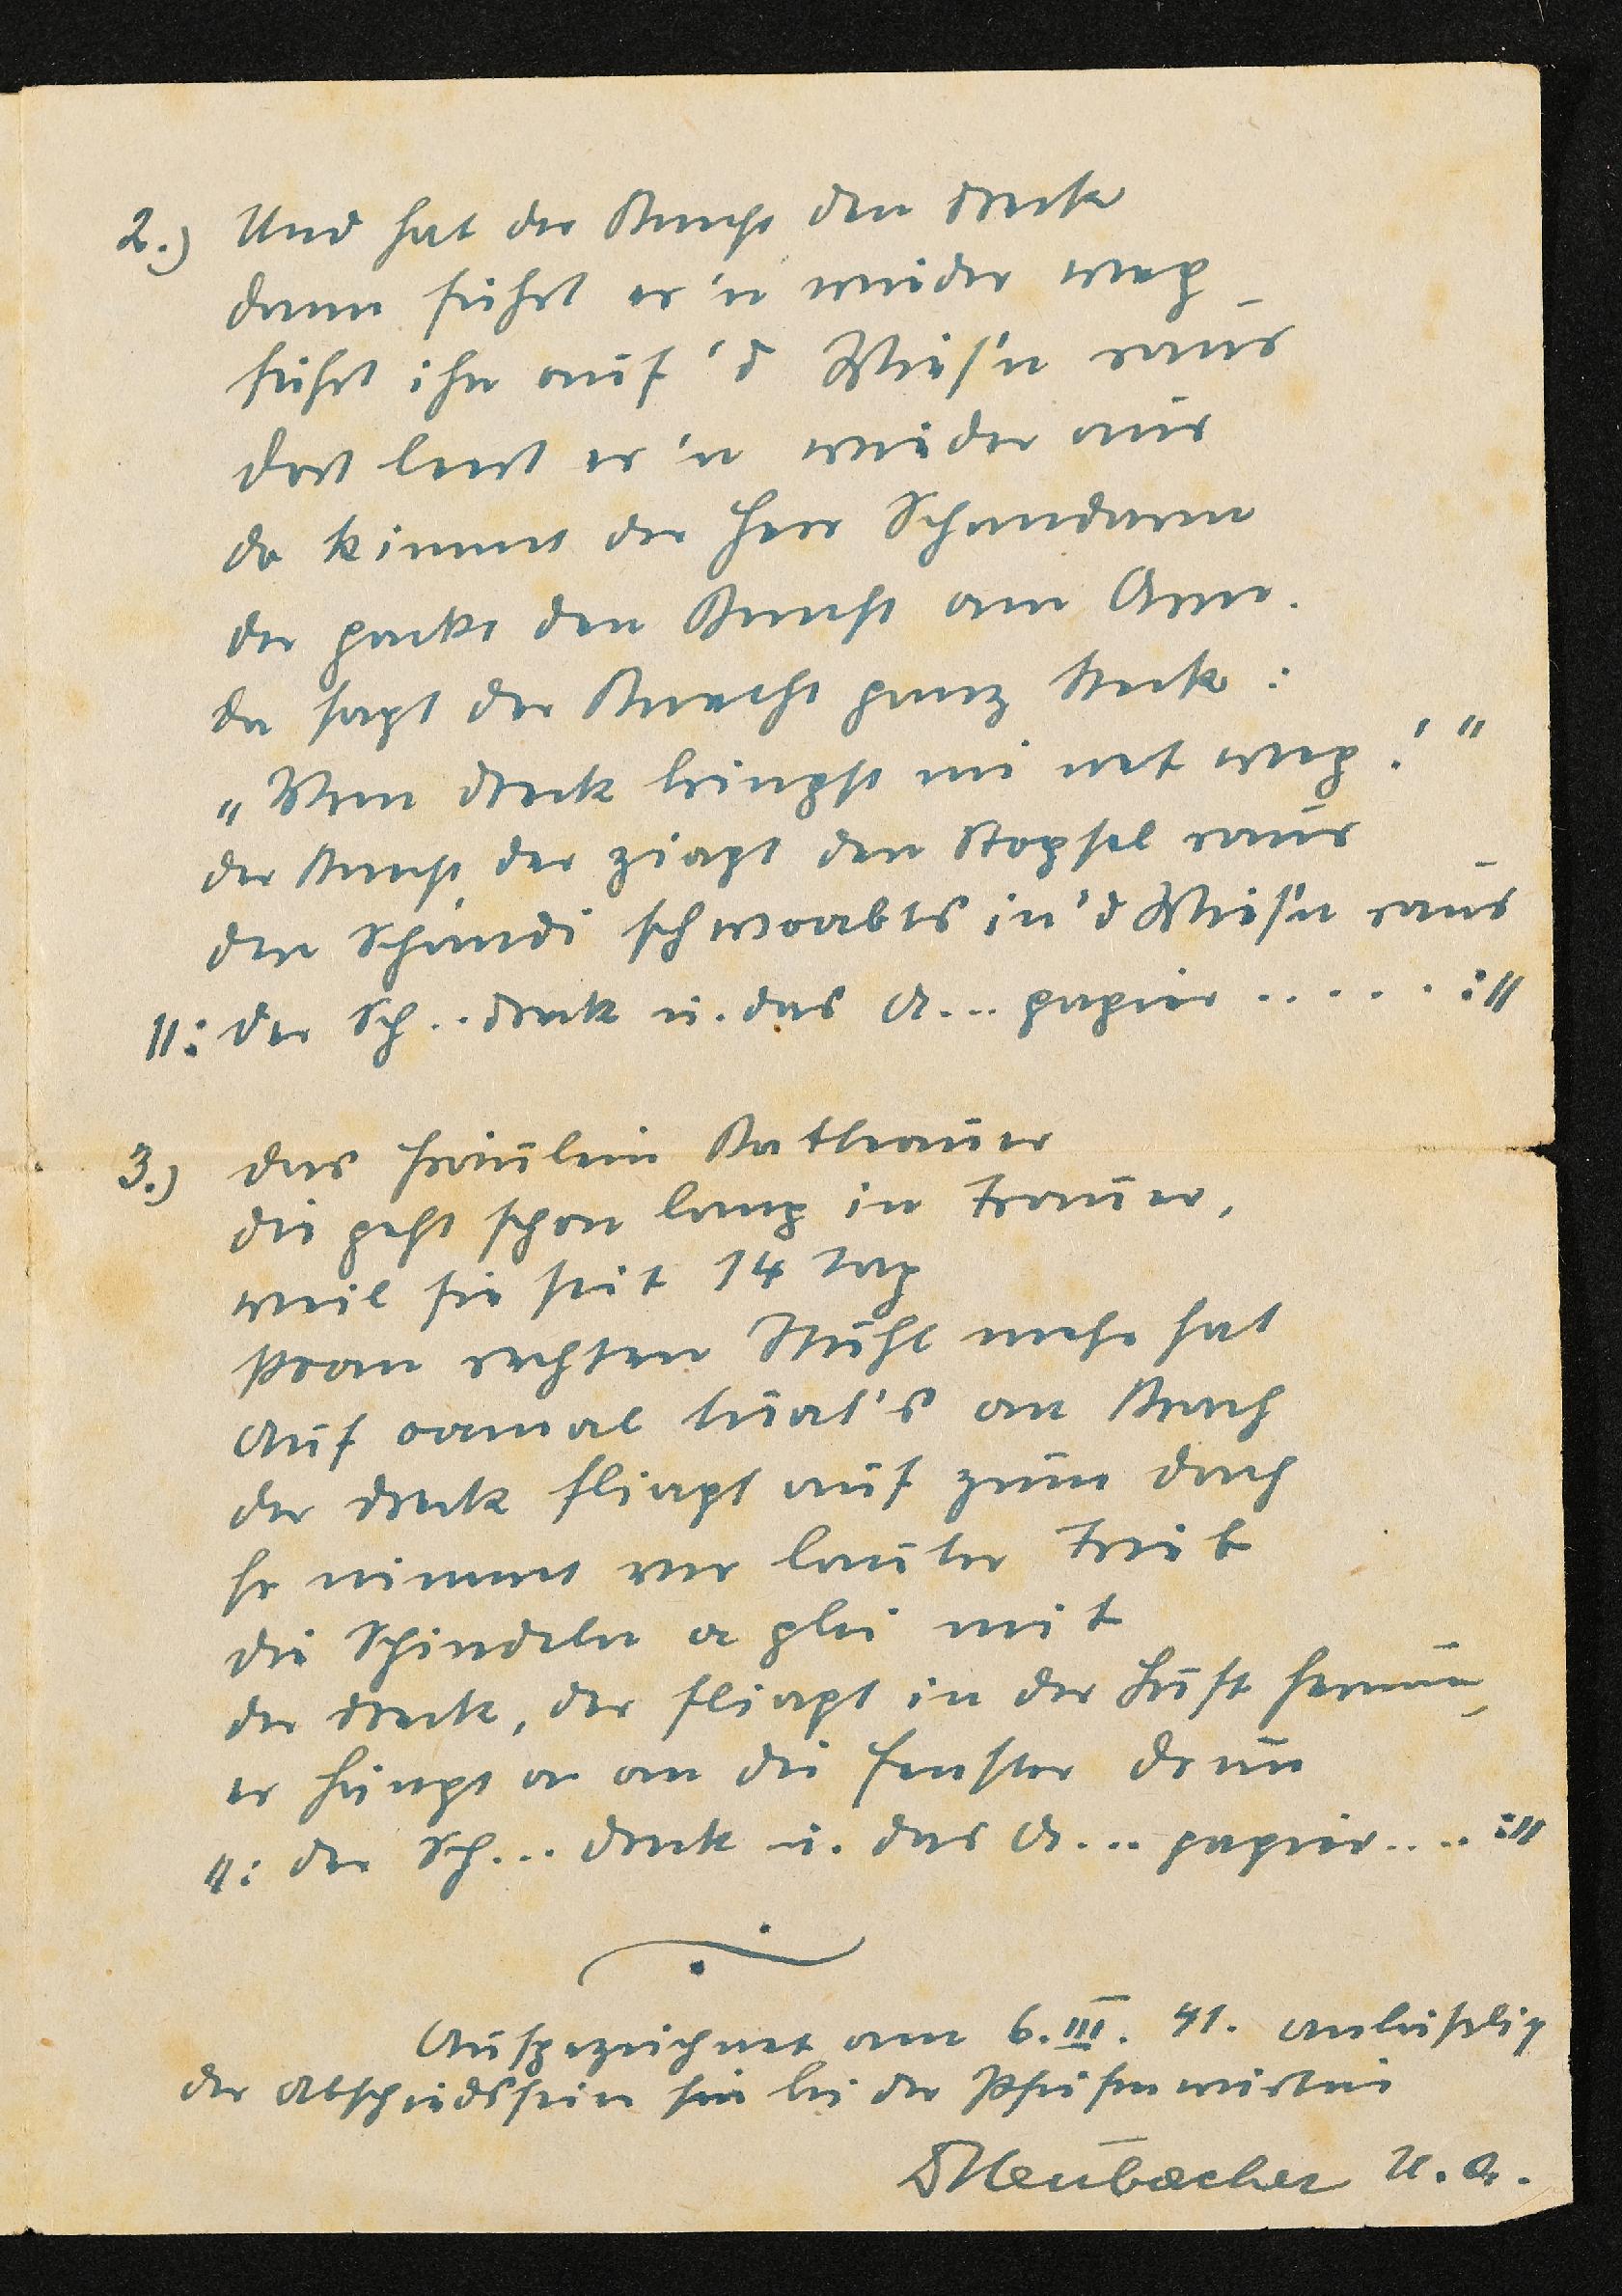 2.) Und hat der Knecht den Dreck
dann führt er'n wieder weg
führt ihn auf 'd Wies'n raus
dort leert er'n wieder aus
da kimmt der Herr Schandarm
der packt den Knecht am Arm.
da sagt der Knecht ganz keck:
„Vom Dreck bringst mi net weg!"
der Knecht der ziagt den Stopsel raus
den Schandi schwoabts in'd Wies'n raus
||: der Sch..dreck u. das A...papier ...... :||
3.) das Fräulein Kathrauer
die geht schon lang in Trauer,
weil sie seit 14 Tag
koan rechten Stuhl mehr hat
auf oamal tuat's an Krach
der Dreck fliagt auf zum Dach
er nimmt vor lauter Trieb
die Schindeln a glei mit
der Dreck, der fliagt in der Luft herum,
er hängt a an die Fenster drun
||: der Sch...dreck u. das A...papier.... :||
Aufgezeichnet am 6. III. 41. anläßlich
der Abschiedsfeier bei der Pfeifenwirtin
Neubacher U.A.